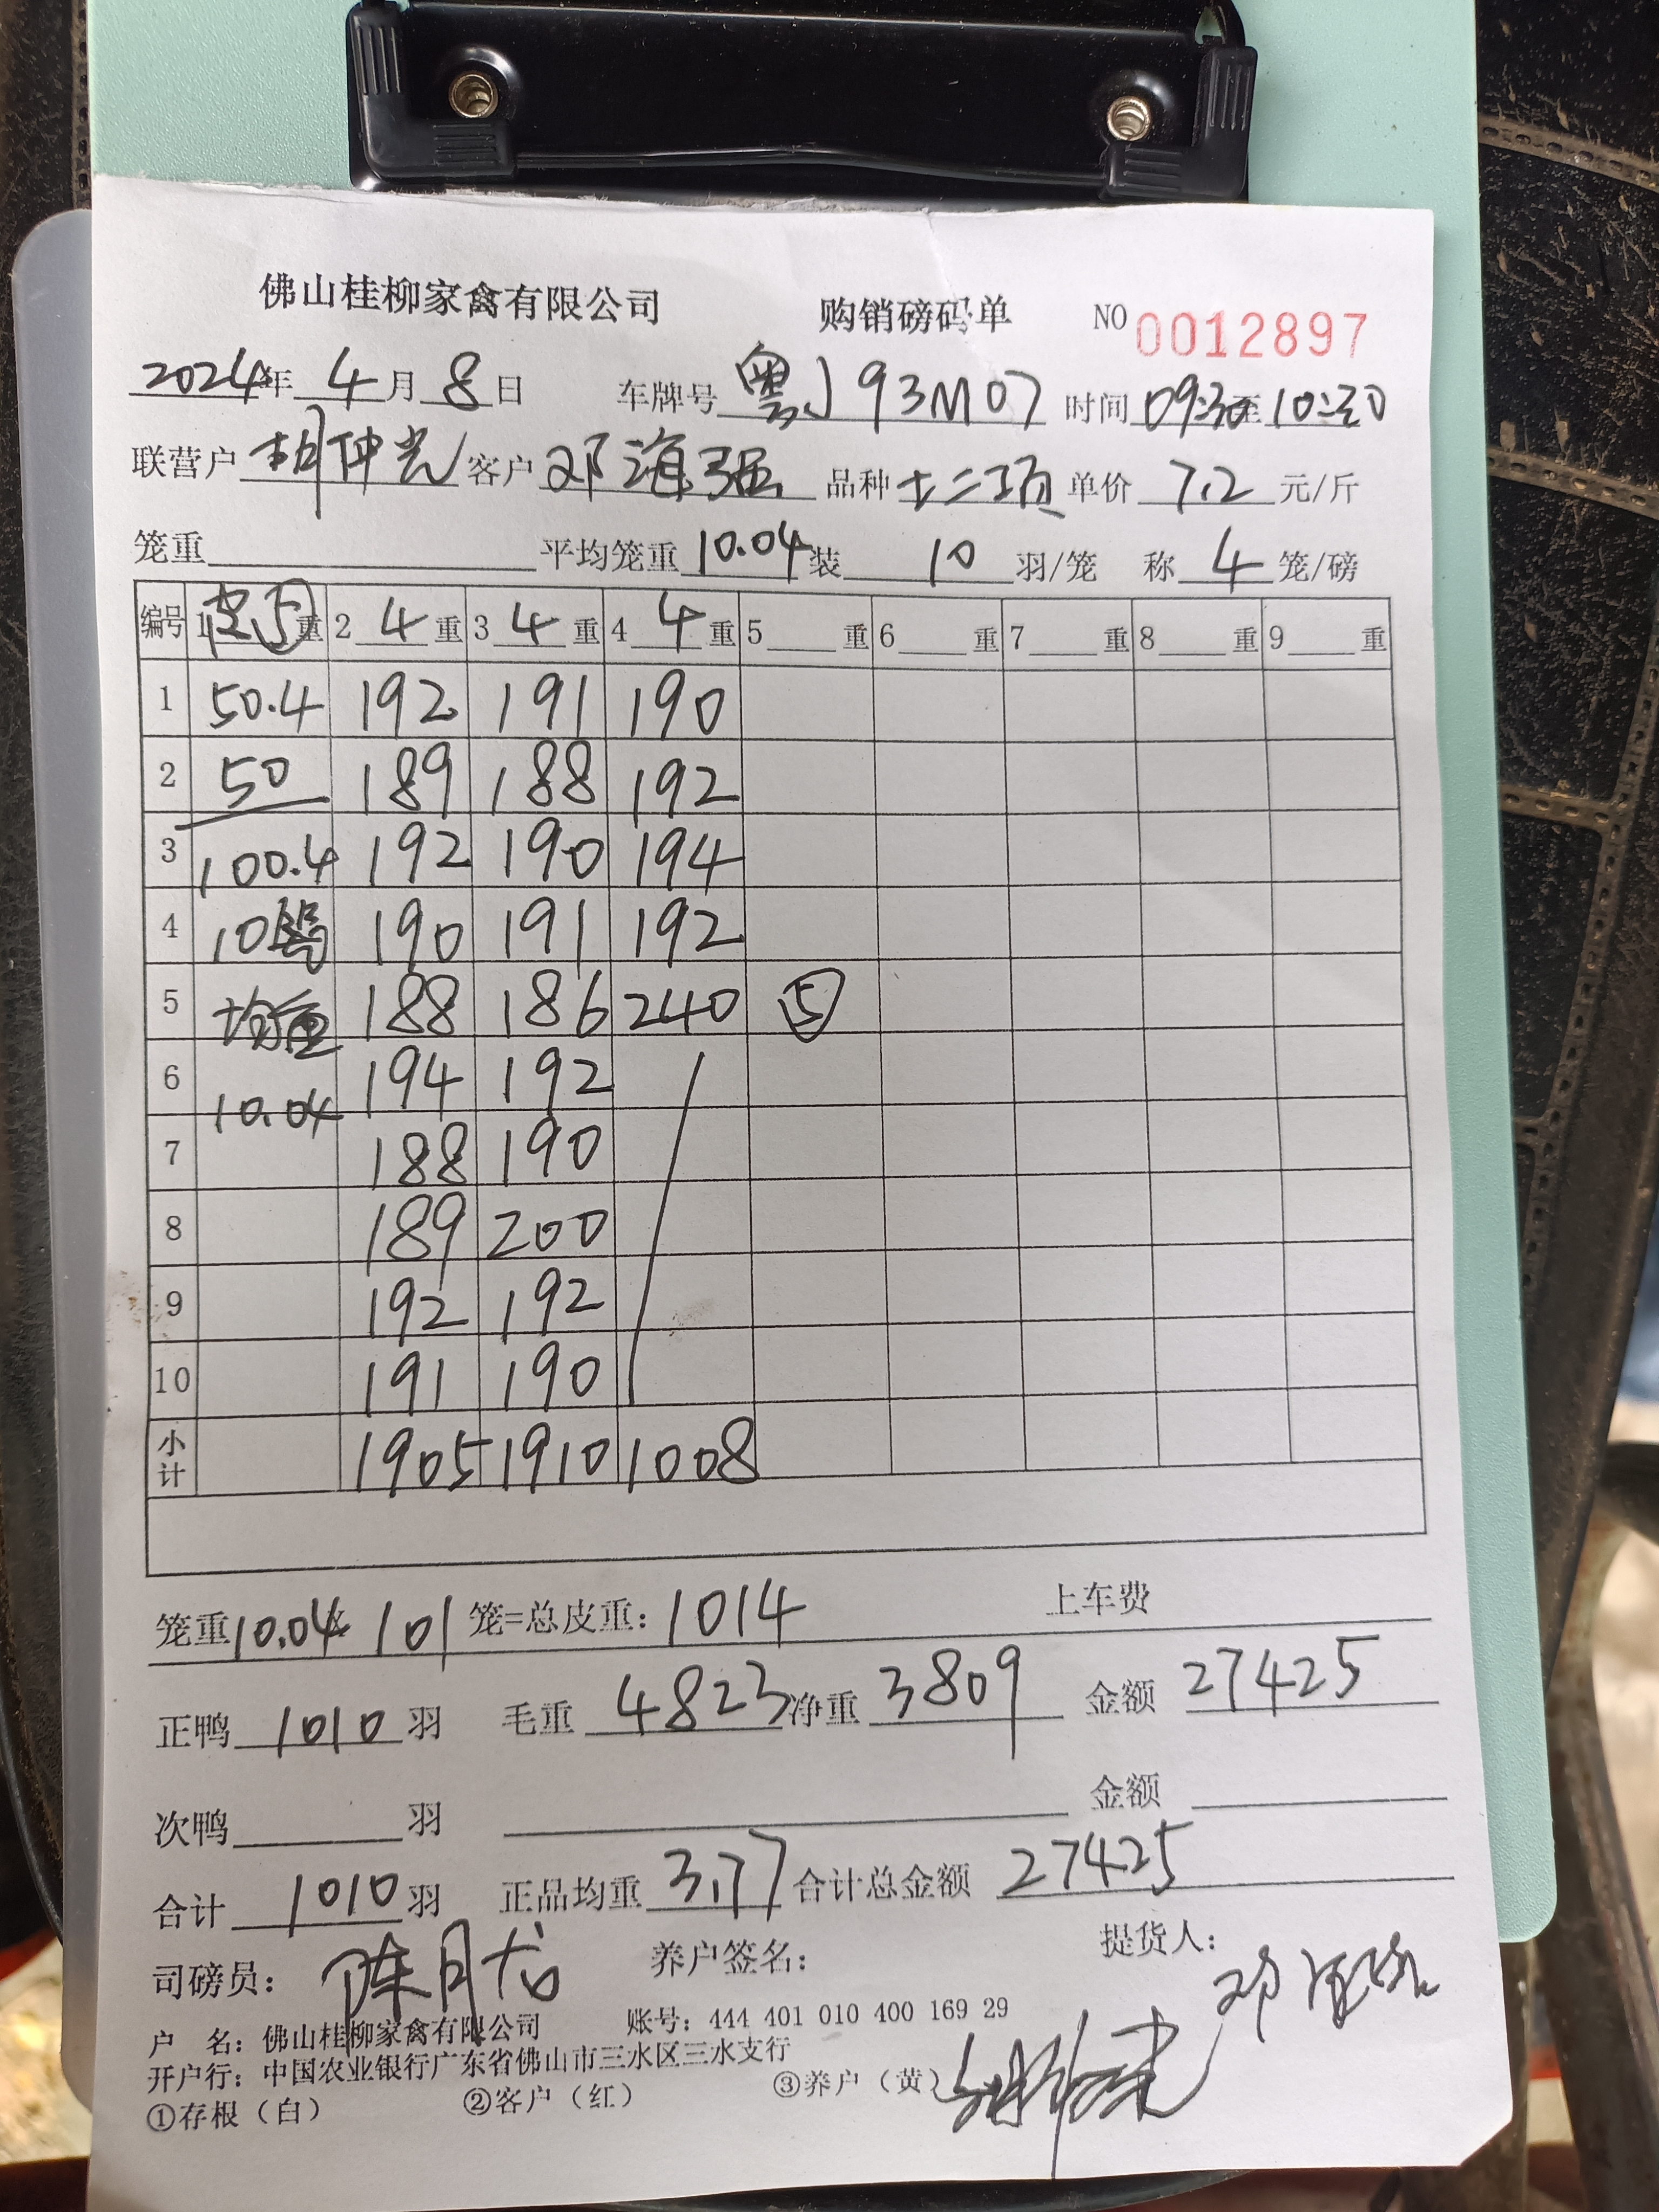 佛山桂柳家禽有限公司 购销磅码单 NO 0012897
2024年 4月 8日 车牌号 粤J 93M07 时间 09:30至10:30
联营户 胡仲光 客户 邓海强 品种 土二项 单价 7.2 元/斤
笼重 平均笼重 10.04 装 10 羽/笼 称 4 笼/磅
编号 1 皮 5 重 2 4 重 3 4 重 4 4 重 5 重 6 重 7 重 8 重 9 重
1 50.4 192 191 190
2 50 189 188 192
3 100.4 192 190 194
4 10 190 191 192
5 均重 188 186 240 ⑤
6 10.04 194 192
7 188 190
8 189 200
9 192 192
10 191 190
小计 1905 1910 1008
笼重 10.04× 101 笼=总皮重: 1014 上车费
正鸭 1010 羽 毛重 4823 净重 3809 金额 27425
次鸭 羽 金额
合计 1010 羽 正品均重 3.77 合计总金额 27425
司磅员: 陈月龙 养户签名: 提货人:
户 名: 佛山桂柳家禽有限公司 账号: 444 401 010 400 169 29
开户行: 中国农业银行广东省佛山市三水区三水支行
①存根（白） ②客户（红） ③养户（黄）